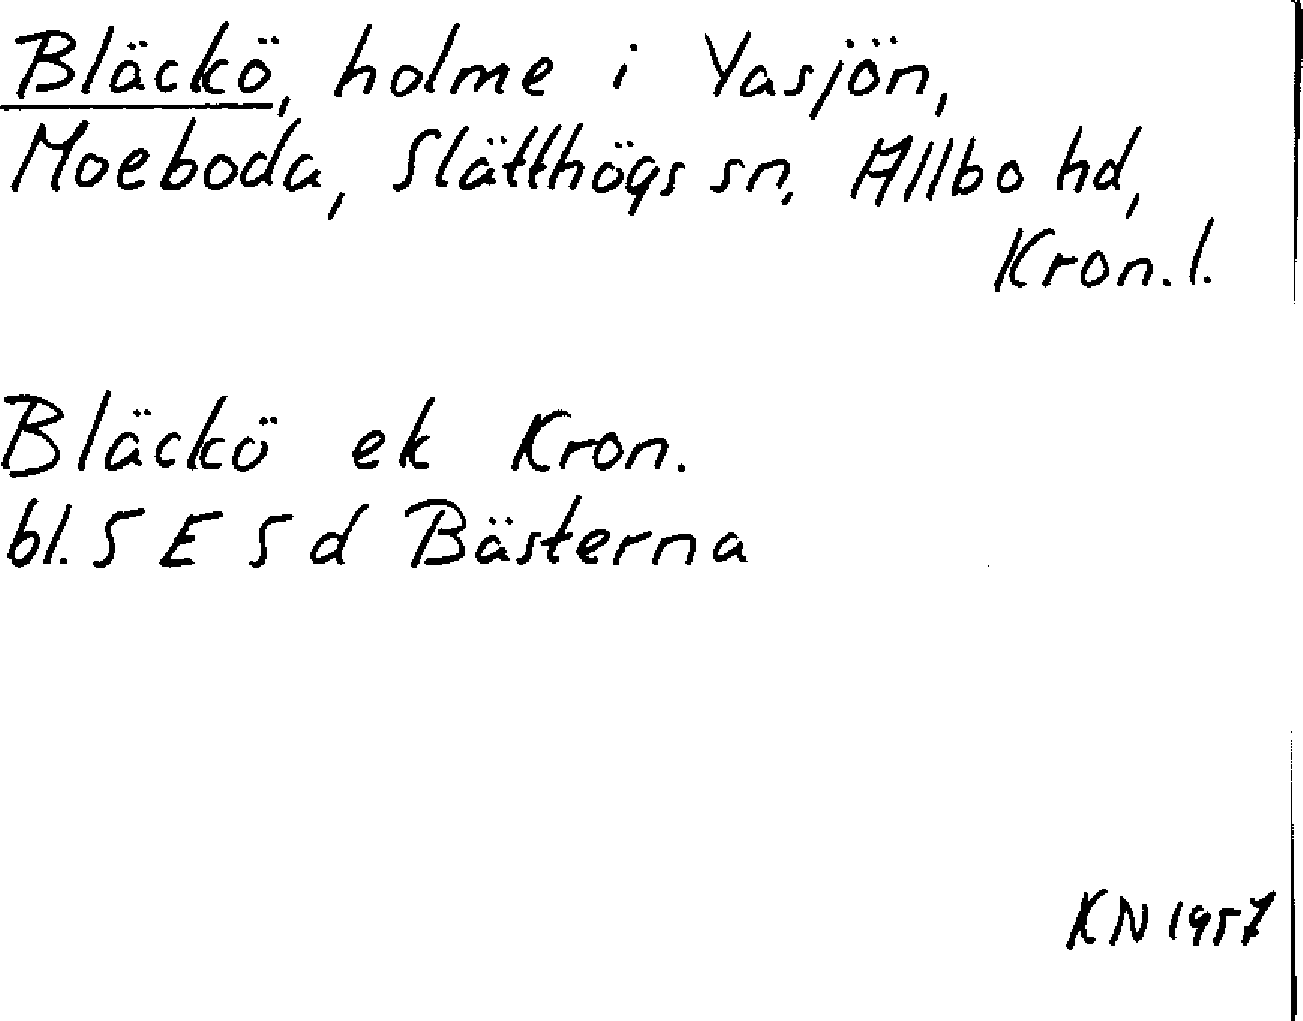 Bläckö, holme i Yasjön,
Moeboda, Slätthögs sn, Allbo hd,
Kron. l.
Bläckö ek Kron.
bl. 5 E 5 d Bästerna
KN 1957